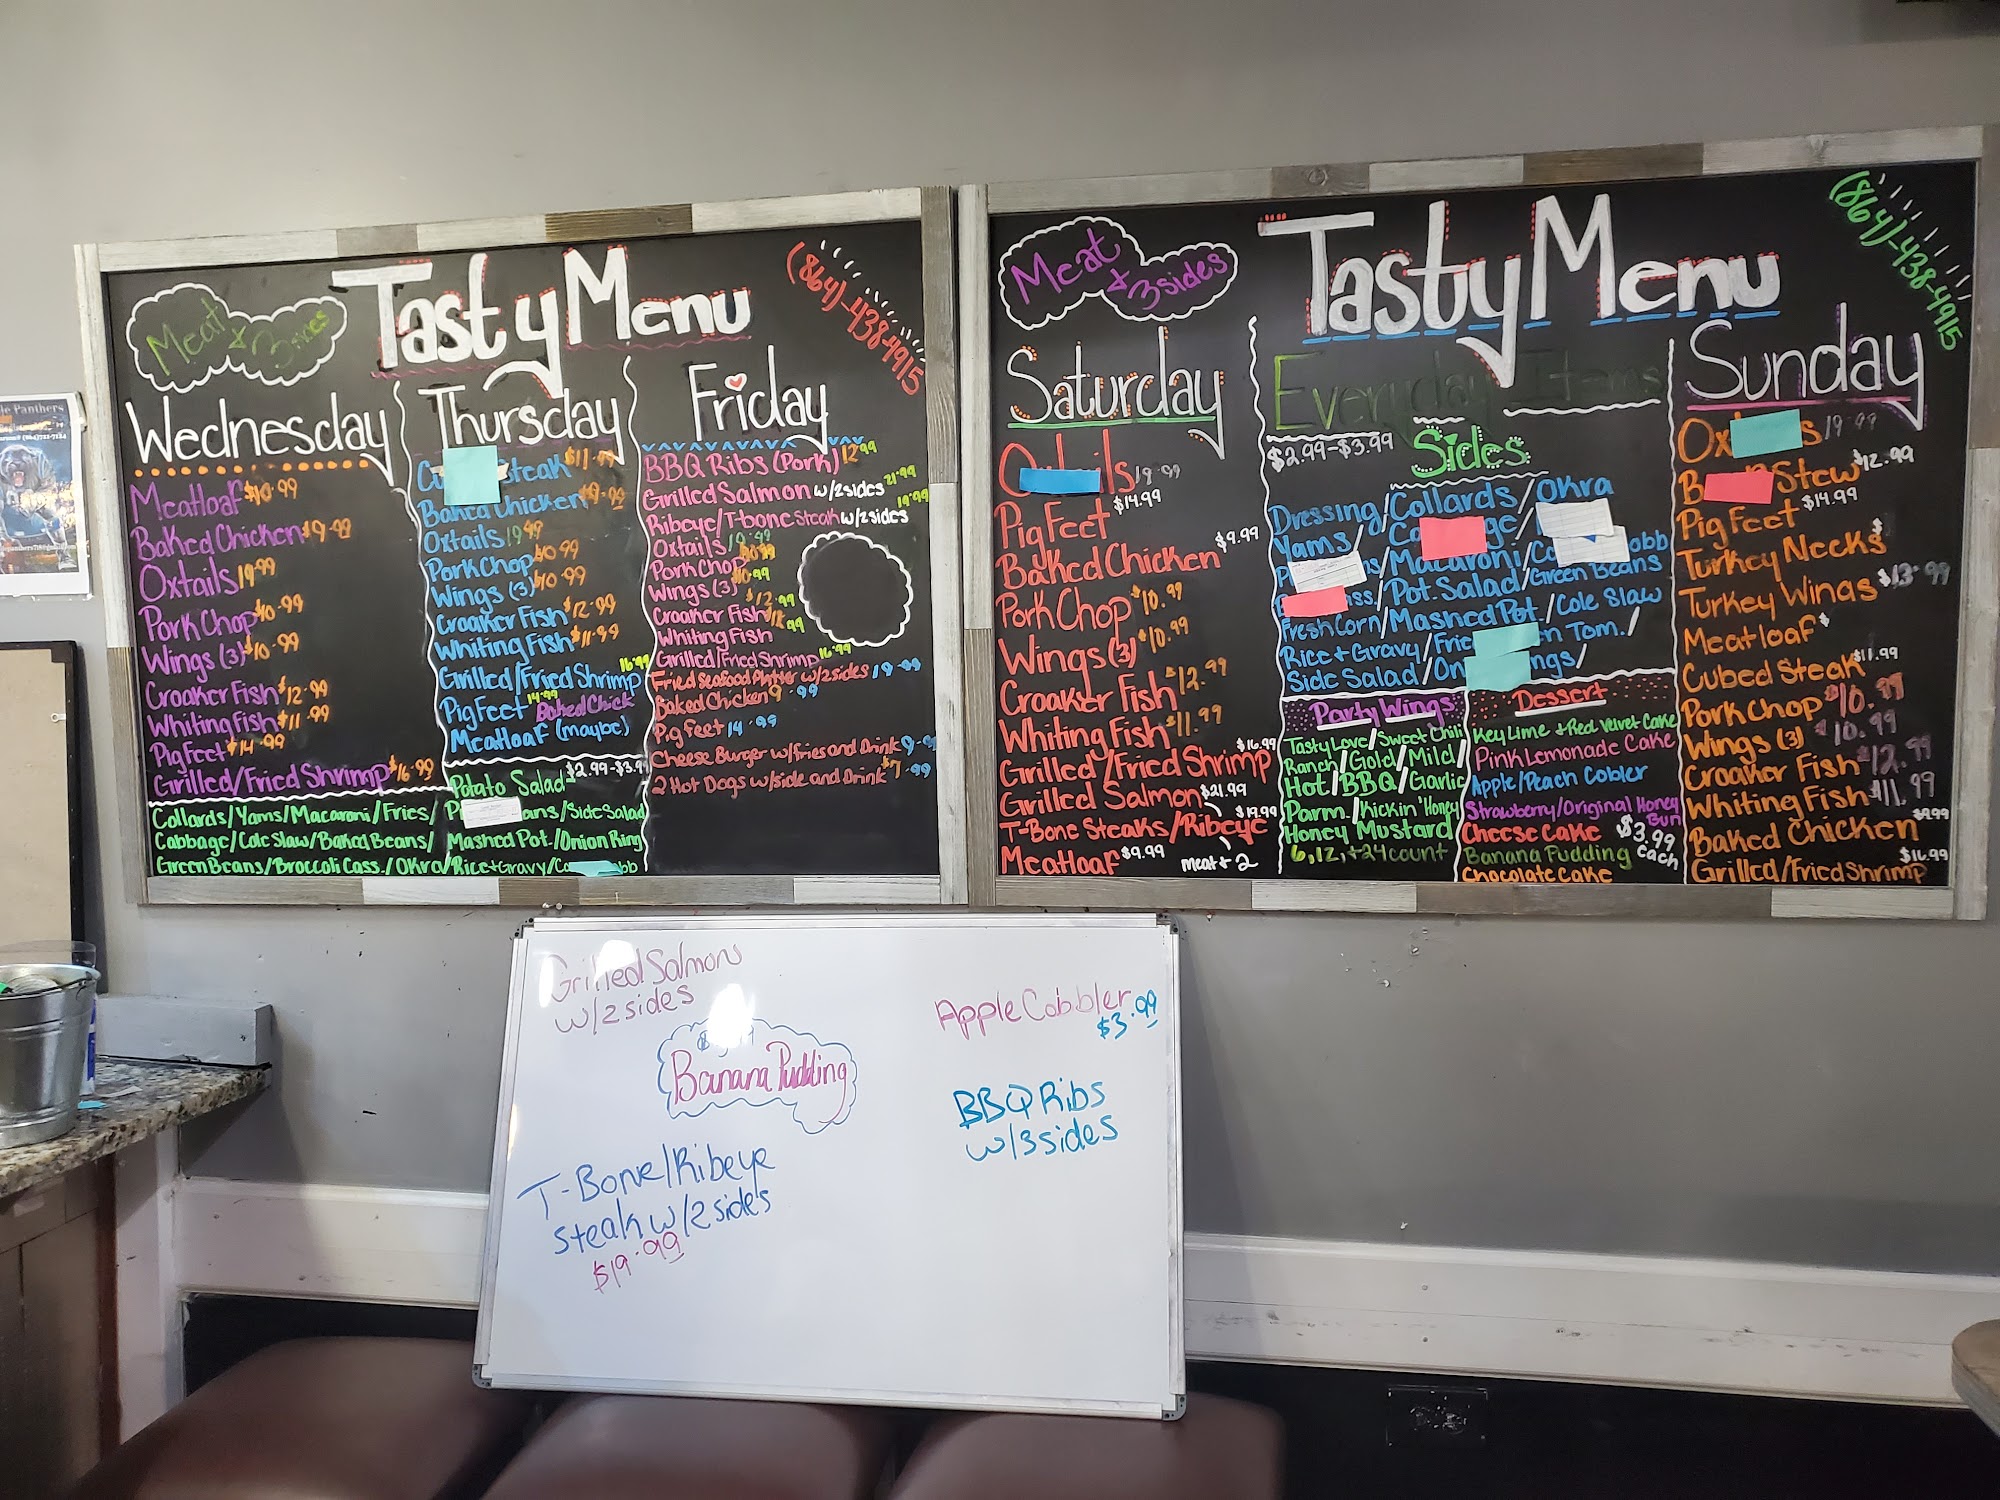 Meat
& 3 sides
Tasty Menu
(864)-438-4915
Wednesday
Meatloaf $10.99
Baked Chicken $9.99
Oxtails 19.99
Pork Chop $10.99
Wings (3) $10.99
Croaker Fish $12.99
Whiting Fish $11.99
Pig Feet $14.99
Grilled/Fried Shrimp $16.99
Collards/Yams/Macaroni/Fries/
Cabbage/Cole Slaw/Baked Beans/
Green Beans/Broccoli Cass./Okra/
Thursday
Steak $11.99
Baked Chicken $9.99
Oxtails 19.99
Pork Chop $10.99
Wings (3) $10.99
Croaker Fish $12.99
Whiting Fish $11.99
Grilled/Fried Shrimp 16.99
Pig Feet 14.99 Baked Chick
Meatloaf (maybe)
$2.99-$3.99
Potato Salad
ans/Side Salad
Mashed Pot./Onion Ring
Rice+Gravy/Co bb
Friday
BBQ Ribs (Pork) 12.99
Grilled Salmon w/2sides 21.99
Ribeye/T-bone Steak w/2sides 19.99
Oxtails 19.99
Pork Chop $10.99
Wings (3) $10.99
Croaker Fish $12.99
Whiting Fish 11.99
Grilled/Fried Shrimp 16.99
Fried Seafood Platter w/2sides 19.99
Baked Chicken 9.99
Pig feet 14.99
Cheese Burger w/fries and Drink 9.99
2 Hot Dogs w/side and Drink $7.99
Meat
& 3 sides
Tasty Menu
(864)-438-4915
Saturday
Oxtails 19.99
Pig Feet $14.99
Baked Chicken $9.99
Pork Chop $10.99
Wings (3) $10.99
Croaker Fish $12.99
Whiting Fish $11.99
Grilled/Fried Shrimp $16.99
Grilled Salmon $21.99
T-Bone Steaks/Ribeye $19.99
Meatloaf $9.99 meat + 2
Everyday Items
$2.99-$3.99
Sides
Dressing/Collards/Okra
Yams/Ca ge/
/Macaroni/Co obb
ss./Pot. Salad/Green Beans
Fresh Corn/Mashed Pot./Cole Slaw
Rice + Gravy/Frie en Tom./
Side Salad/On ngs/
Party Wings
Tasty Love/Sweet Chili
Ranch/Gold/Mild/
Hot/BBQ/Garlic
Parm./Kickin' Honey
Honey Mustard
6, 12, +24 count
Dessert
Key Lime + Red Velvet Cake
Pink Lemonade Cake
Apple/Peach Cobler
Strawberry/Original Honey
Bun
Cheese Cake $3.99
Banana Pudding each
Chocolate Cake
Sunday
Ox s 19.99
B Stew $12.99
Pig Feet $14.99
Turkey Necks $
Turkey Wings $13.99
Meatloaf $
Cubed Steak $11.99
Pork Chop $10.99
Wings (3) $10.99
Croaker Fish $12.99
Whiting Fish $11.99
Baked Chicken $9.99
Grilled/Fried Shrimp $16.99
Grilled Salmon
w/2 sides
Banana Pudding
T-Bone/Ribeye
Steak w/2 sides
$19.99
Apple Cobbler
$3.99
BBQ Ribs
w/3 sides
le Panthers